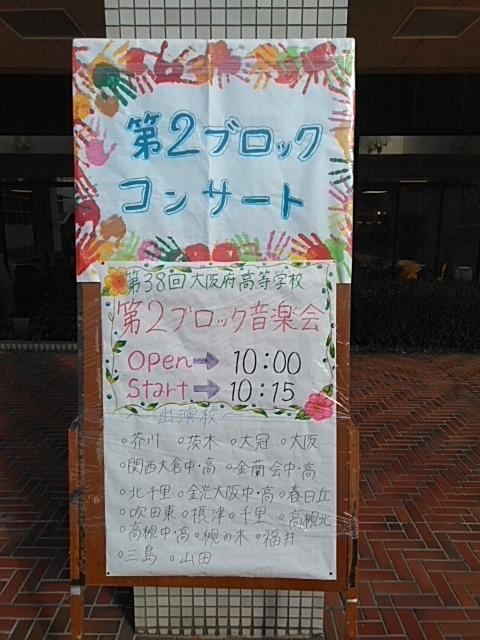 第2ブロック
コンサート
第38回大阪府高等学校
第2ブロック音楽会
Open→10:00
Start→10:15
出演校
○芥川 ○茨木 ○大冠 ○大阪
○関西大倉中・高 ○金蘭会中・高
○北千里 ○金光大阪中・高 ○春日丘
○吹田東 ○摂津 ○千里 ○高槻北
○高槻中・高 ○槻の木 ○福井
○三島 ○山田